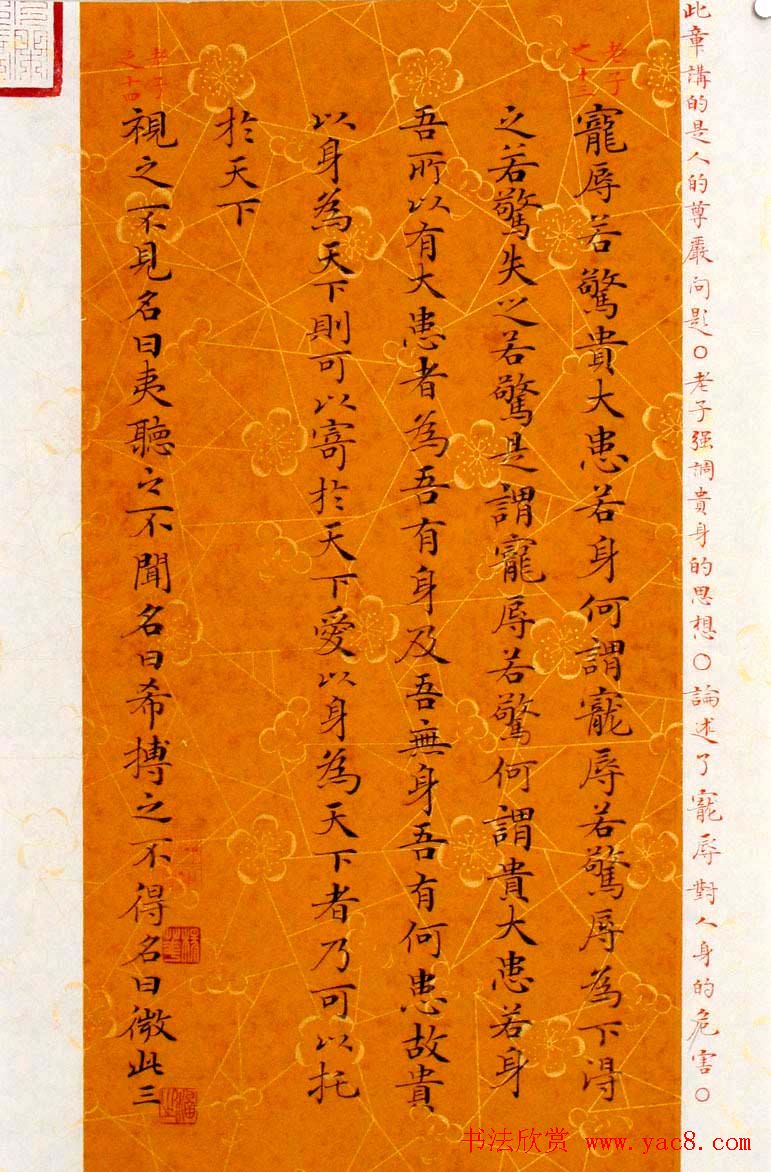 此章講的是人的尊嚴问题○老子强調貴身的思想○論述了寵辱對人身的危害○
老子
之十三
寵辱若驚貴大患若身何謂寵辱若驚辱為下得
之若驚失之若驚是謂寵辱若驚何謂貴大患若身
吾所以有大患者為吾有身及吾無身吾有何患故貴
以身為天下則可以寄於天下愛以身為天下者乃可以托
於天下
老子
之十四
視之不見名曰夷聽之不聞名曰希搏之不得名曰微此三
书法欣赏 www.yac8.com